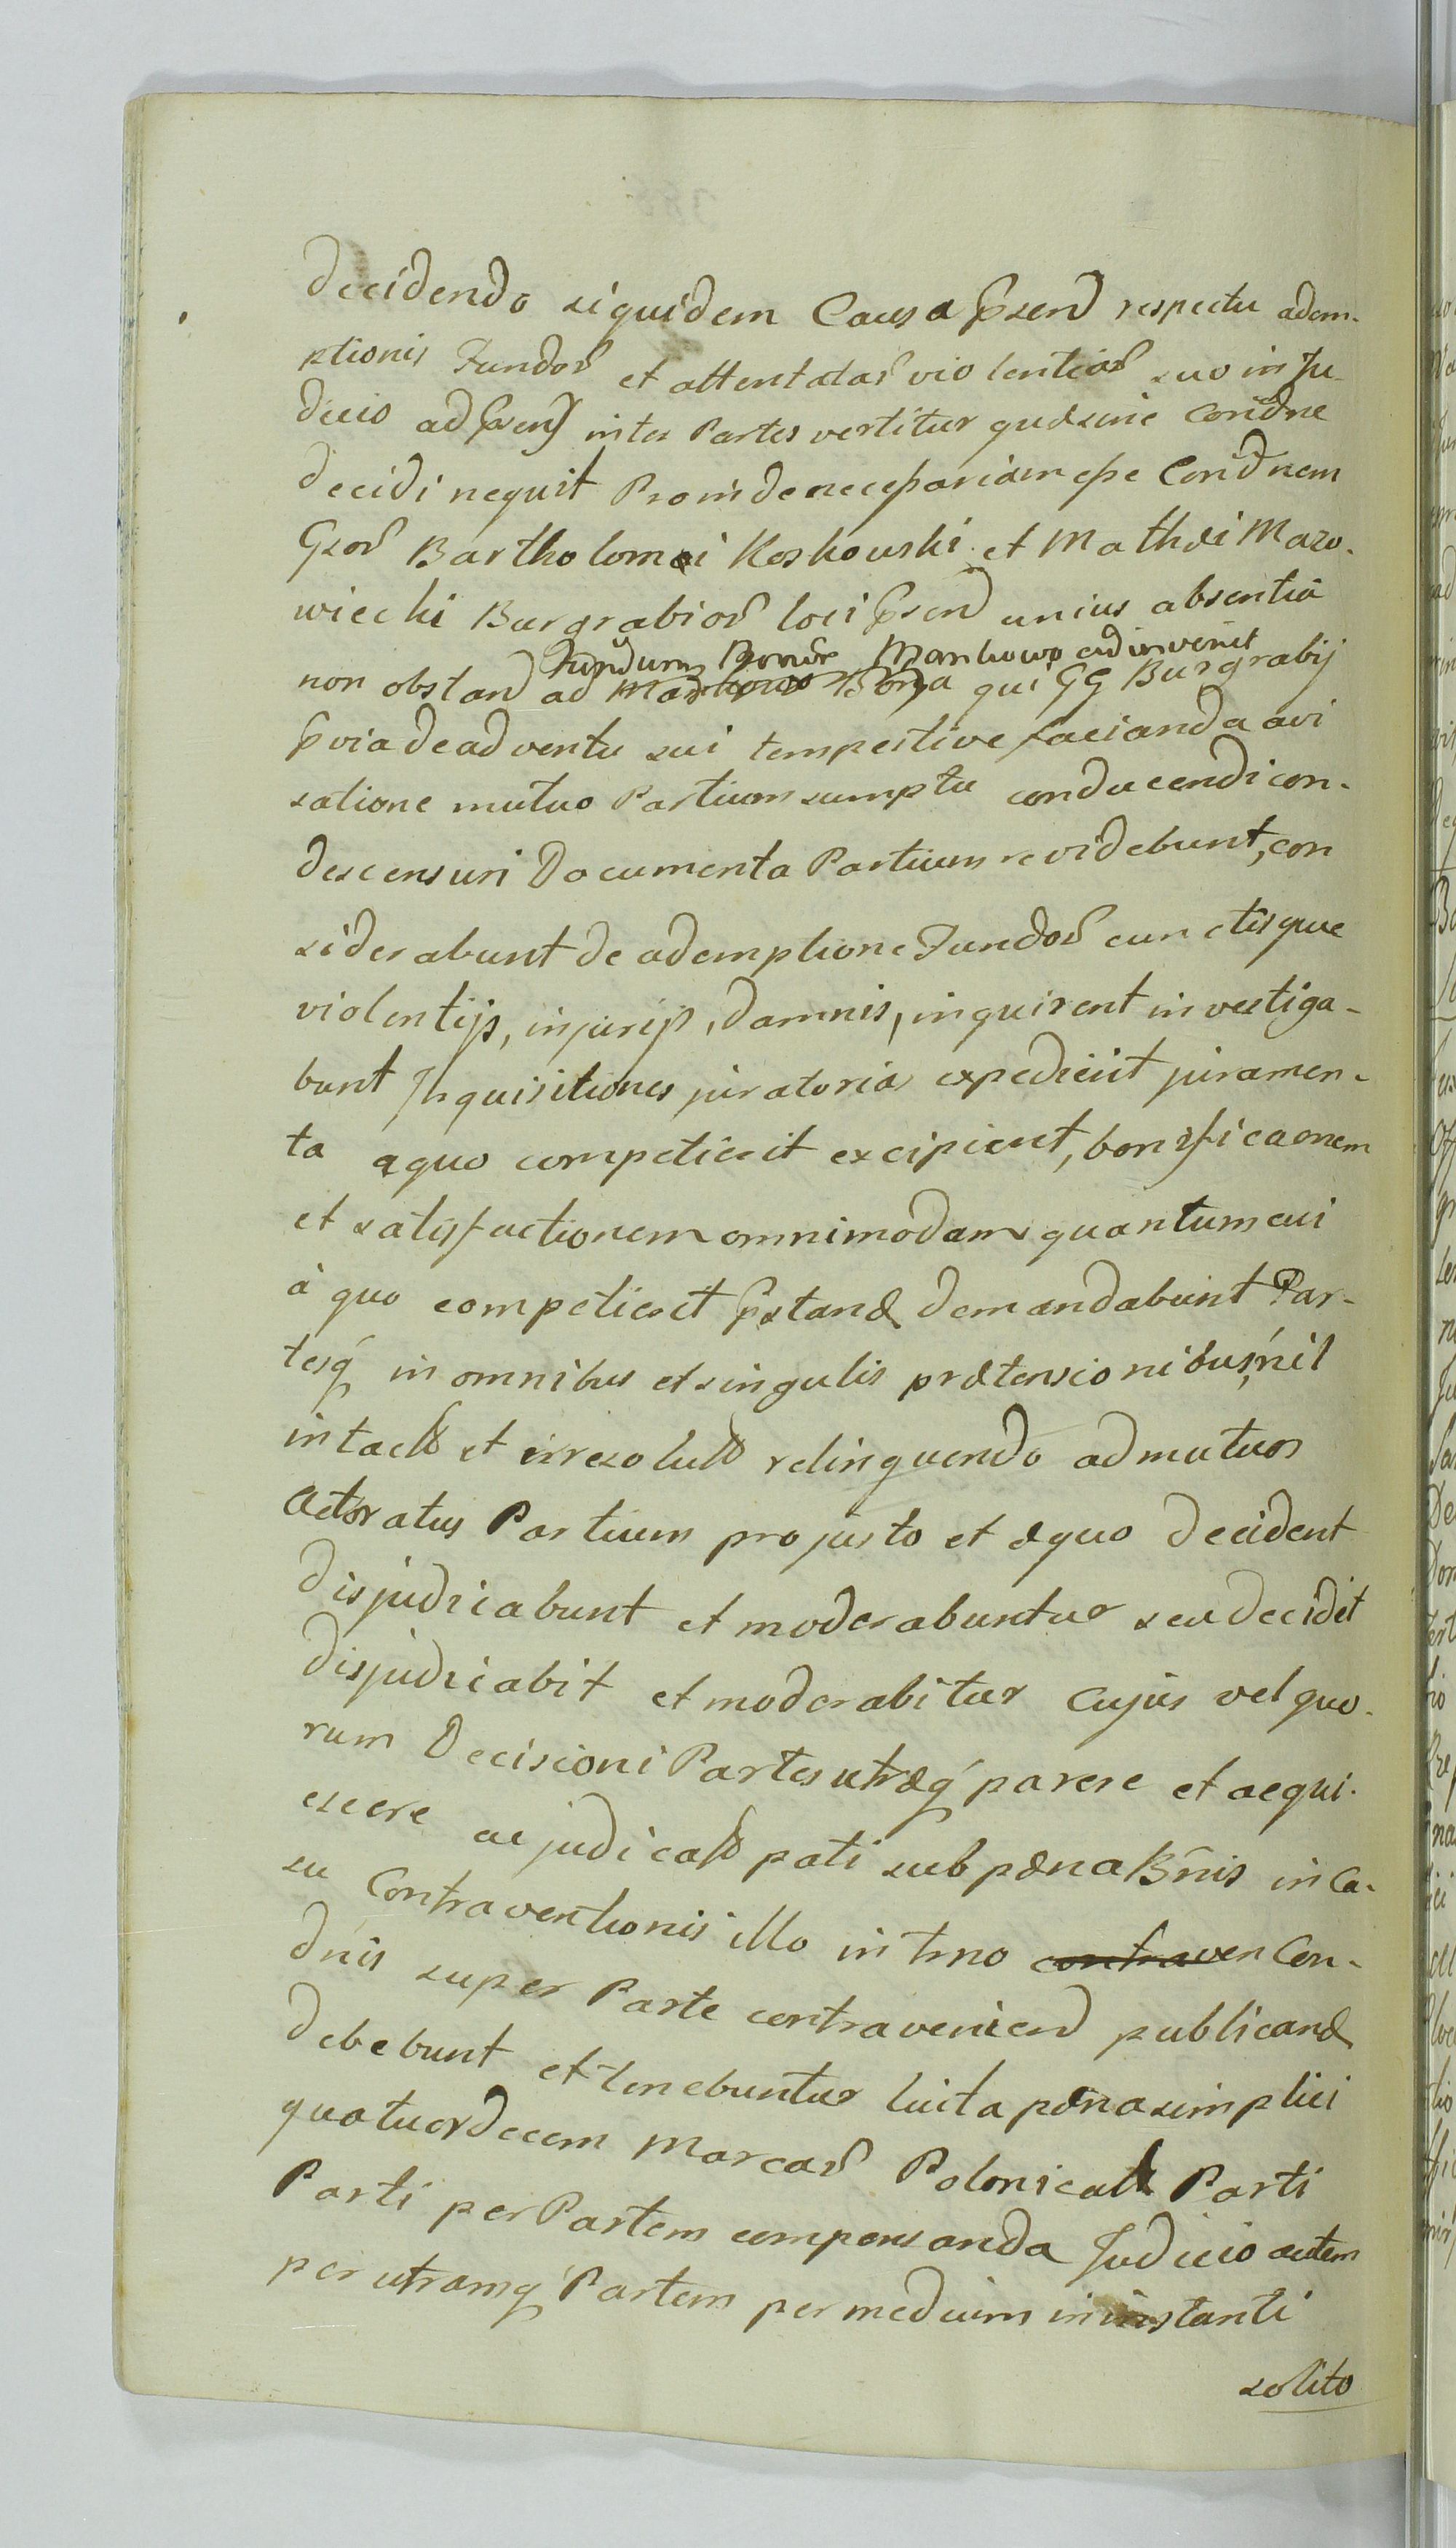 decidendo siquidem Causa Pssend respectu adem-
ptionis Fundor et attentatar violentiar suo in Ju-
dicio ad Pssens inter Partes vertitur quæ sine Condne
decidi nequit Proinde necessariam esse Condnem
Gsor Bartholomæi Koskowski et Mathæi Mazo-
wiecki Burgrabior loci Pssend unius absentiâ
Fundum Bonor Mankowo adinvenit
non obstand ad Mankowo Bona qui GG Burgrabij
Pvia de adventu sui tempestive facianda avi
satione mutuo Partium sumptu conducendi con-
descensuri Documenta Partium revidebunt, con
siderabunt de ademptione Fundor cunctisque
violentijs, injurijs, damnis, inquirent investiga-
bunt Inquisitiones juratorias expedient juramen-
ta a quo competierit excipient, bonificaonem
et satisfactionem omnimodam quantum cui
à quo competierit Pstand demandabunt Par-
tesq in omnibus et singulis prætensionibus, nil
intacti et irresoluti relinquendo ad mutuos
Actoratus Partium pro justo et æquo decident
disjudicabunt et moderabuntur seu decidet
disjudicabit et moderabitur Cujus vel quo-
rum Decisioni Partes utræq parere et acqui-
escere ac judicatt pati sub pæna Bnis in Ca-
su Contraventionis illo in tmno contraven Con-
dnis super Parte contraveniend publicand
debebunt et tenebuntur luita pæna simplici
quatuordecem Marcar Polonical Parti
Parti per Partem compensanda Judicio autem
per utramq Partem per medium in instanti
solito